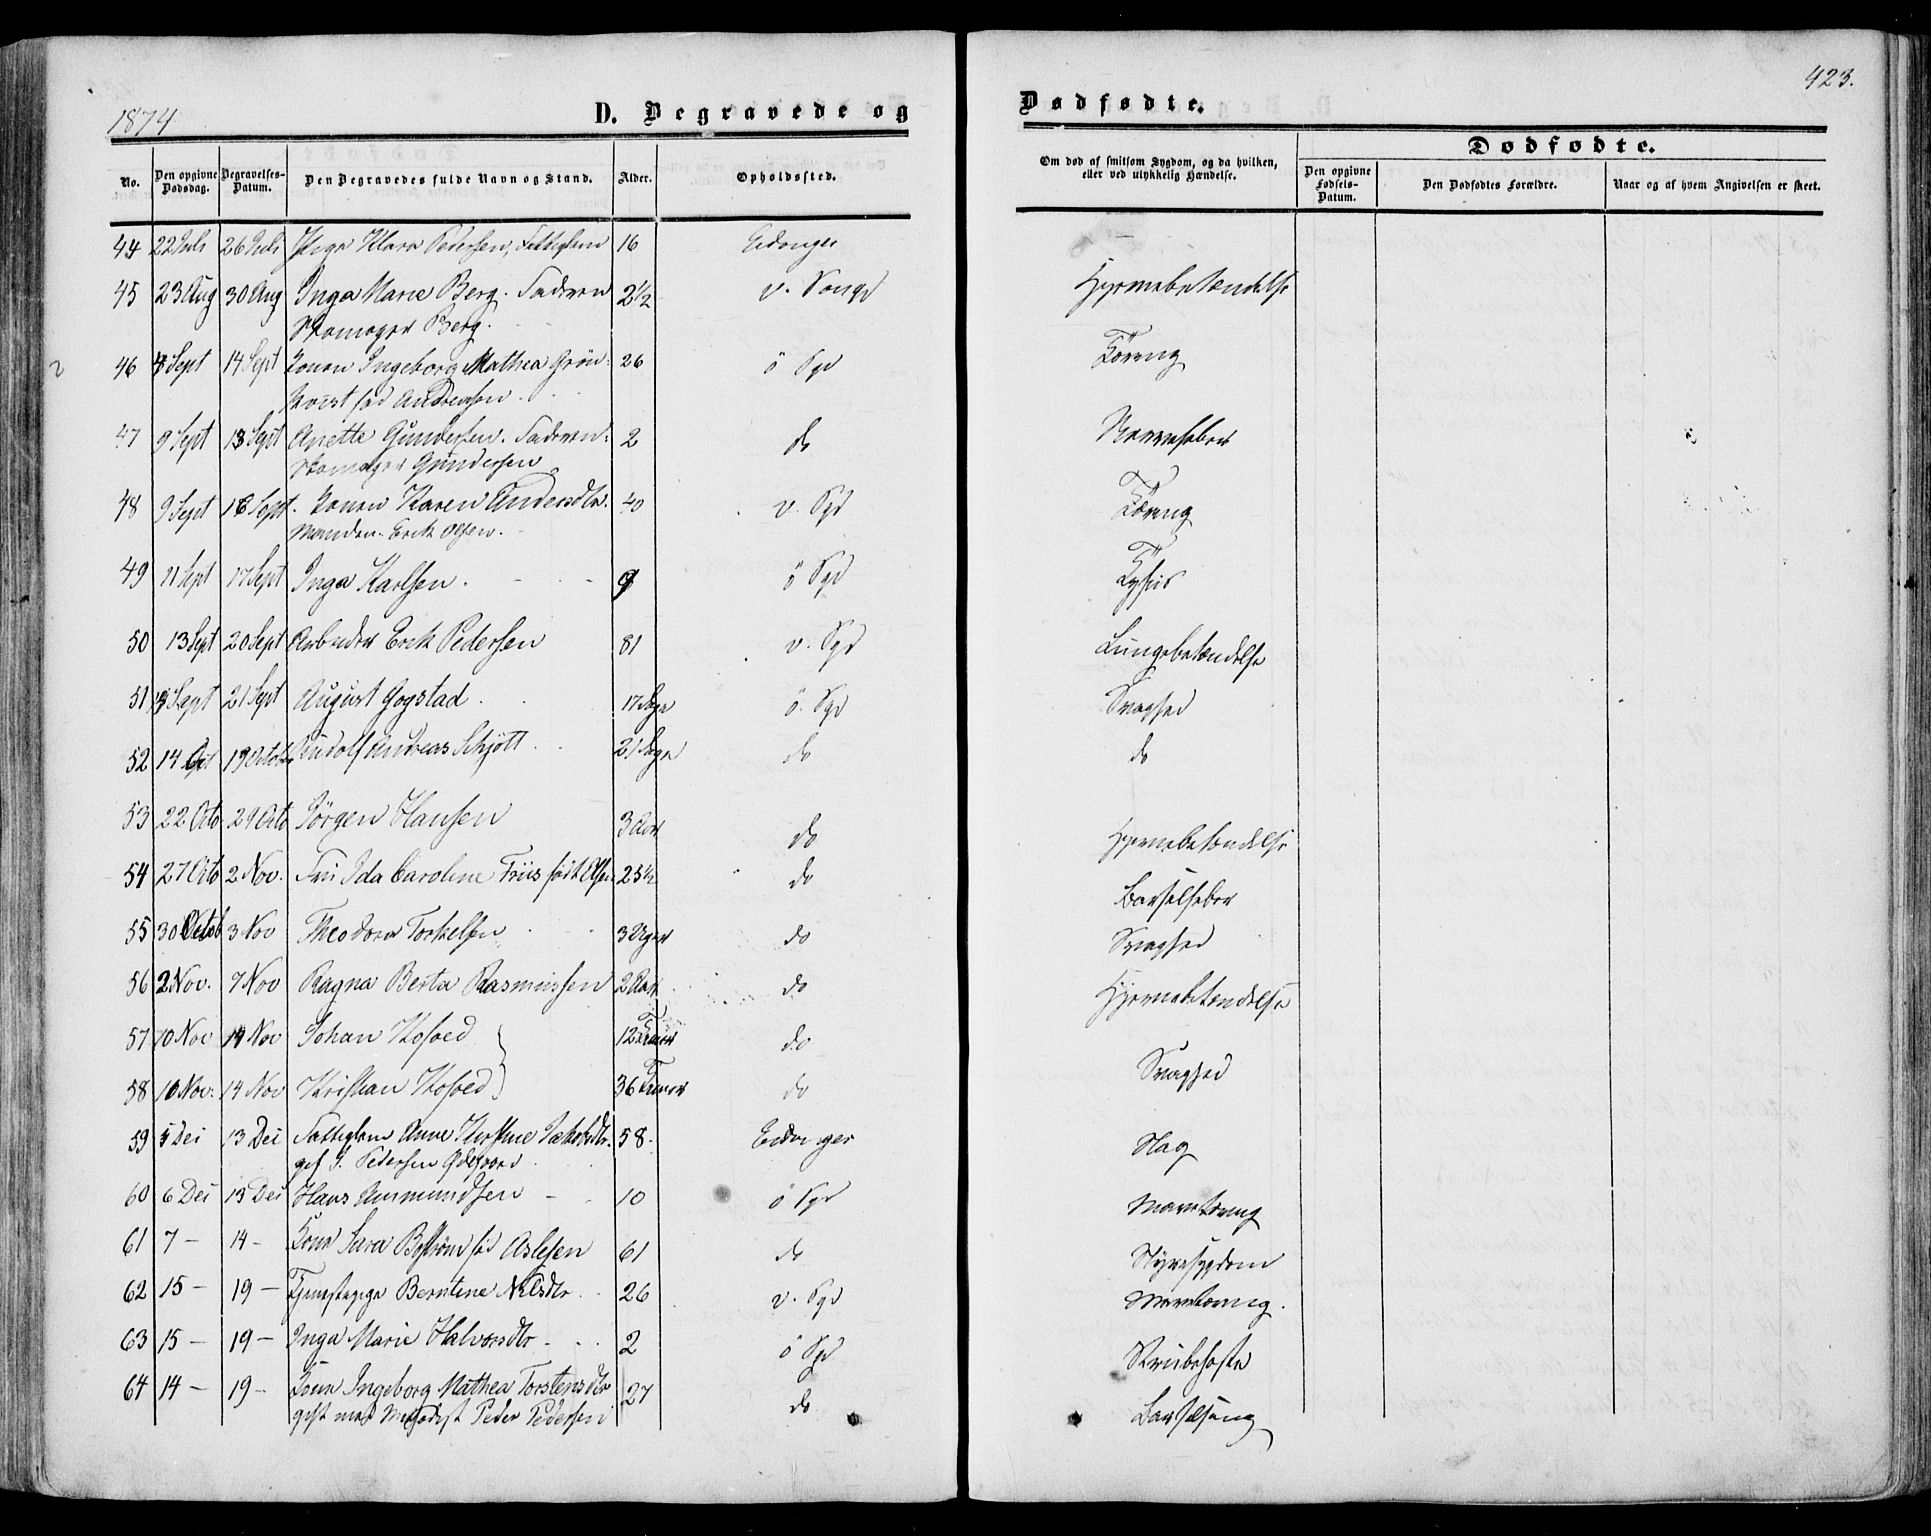 1874
D. Begravede og
Dødfødte.
423.
No.
Den opgivne Dødsdag.
Begravelses-Datum.
Den Begravedes fulde Navn og Stand.
Alder.
Opholdssted.
Om død af smitsom Sygdom, og da hvilken, eller ved ulykkelig Hændelse.
Dødfødte.
Den opgivne Fødsels-Datum.
Den Dødfødtes Forældre.
Naar og af hvem Angivelsen er skeet.
44 22 Juli 26 Juli Klara Pedersen, Fattiglem 16 Eidanger
45 23 Aug 30 Aug Inga Marie Berg. Faderen 2½ v. Hjernebetændelse
Skomager Berg.
46 Sept 14 Sept Konen Ingeborg Mathea Grön- 26 ö Sgd Tæring
kvist fød Andersen.
47 9 Sept 13 Sept Anette Gundersen. Faderen 2 do Nervefeber
Skomager Gundersen
48 9 Sept 16 Sept. Konen Karen Andersdtr. 40 v. Sgd Tæring
Manden. Erik Olsen.
49 11 Sept 17 Sept Inga Karlsen. 9 ö Sgd Tyfus
50 13 Sept 20 Sept Arbeider Erik Pedersen 81 v. Sgd Lungebetændelse
51 Sept 21 Sept August Gogstad. 17 Dage ö. Sgd Svaghed
52 14 19 Octob Rudolf Andreas Schjött 21 Dage do do
53 22 Octo 29 Octo Jörgen Hansen 3 Aar do Hjernebetændelse
54 27 Octo 2 Nov. Fru Ida Caroline Friis født Olsen 25½ do Barselfeber
55 30 Octob 3 Nov Theodor Torkelsen 3 Uger do Svaghed
56 2 Nov. 7 Nov Ragna Berta Rasmussen 2 Aar do Hjernebetændelse
57 10 Nov 14 Nov Johan Kofoed 12 Timer do
58 10 Nov. 14 Nov Kristian Kofoed 36 Timer do Svaghed
59 5 Dei 13 Dei Fattiglem Anne Kirstine Jakobsdtr. 58 Eidanger Slag
gift Pedersen Ødegaard
60 6 Dei 13 Dei Hans Ammundsen 10 ö Sgd Mavetæring
61 7 - 14 - Kone Sara Byström fød Aslesen 61 do Nyresygdom
62 15 - 19 - Tjenestepige Berntine Nilsdtr. 26 v. Sgd Mavetæring.
63 15 - 19 - Inga Marie Halvorsdtr 2 ö Sgd Strubehoste
64 14 - 19 - Kone Ingeborg Mathea Torstensdtr 27 do Barselseng
gift med Methodist Peder Pedersen